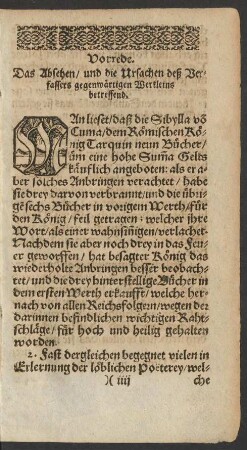 Vorrede.
Das Absehen/ und die Ursachen deß Ver-
fassers gegenwärtigen Werkleins
betreffend.
MAn lieset/daß die Sibylla võ
Cuma/dem Römischen Kö-
nig Tarquin neun Bücher/
üm eine hohe Sum̃a Gelts
käufflich angeboten: als er a-
ber solches Anbringen verachtet/ habe
sie drey darvon verbrannt/und die übri-
ge sechs Bücher in vorigem Werth/für
den König/ feil getragen: welcher ihre
Wort/als einer wahnsiñigen/verlachet.
Nachdem sie aber noch drey in das Feu-
er geworffen/ hat besagter König das
wiederholte Anbringen besser beobach-
tet/ und die drey hinterstellige Bücher in
dem ersten Werth erkaufft/ welche her-
nach von allen Reichsfolgern/wegen der
darinnen befindlichen wichtigen Raht-
schläge/ für hoch und heilig gehalten
worden.
2. Fast dergleichen begegnet vielen in
Erlernung der löblichen Poëterey/wel-
)( iiij che